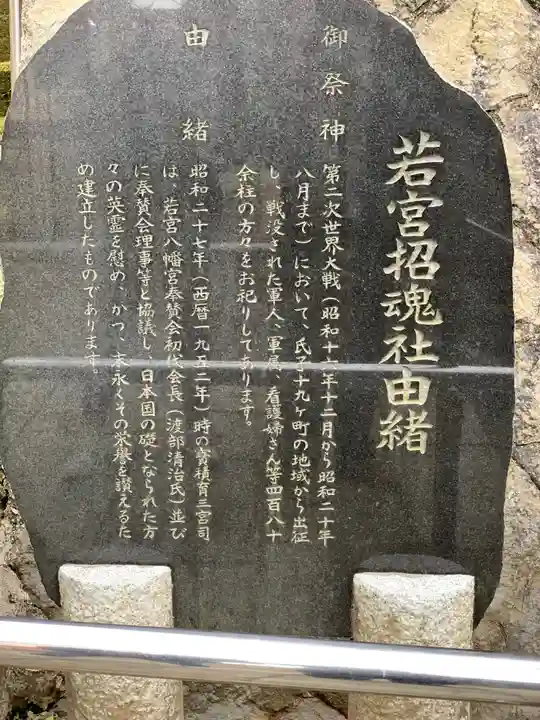 若宮招魂社由緒
御祭神
第二次世界大戦（昭和十六年十二月から昭和二十年
八月まで）において、氏子十九ヶ町の地域から出征
し、戦没された軍人、軍属、看護婦さん等四百八十
余柱の方々をお祀りしてあります。
由緒
昭和二十七年（西暦一九五二年）時の寳積育三宮司
は、若宮八幡宮奉賛会初代会長（渡部清治氏）並び
に奉賛会理事等と協議し、日本国の礎となられた方
々の英霊を慰め、かつ、末永くその栄誉を讃えるた
め建立したものであります。